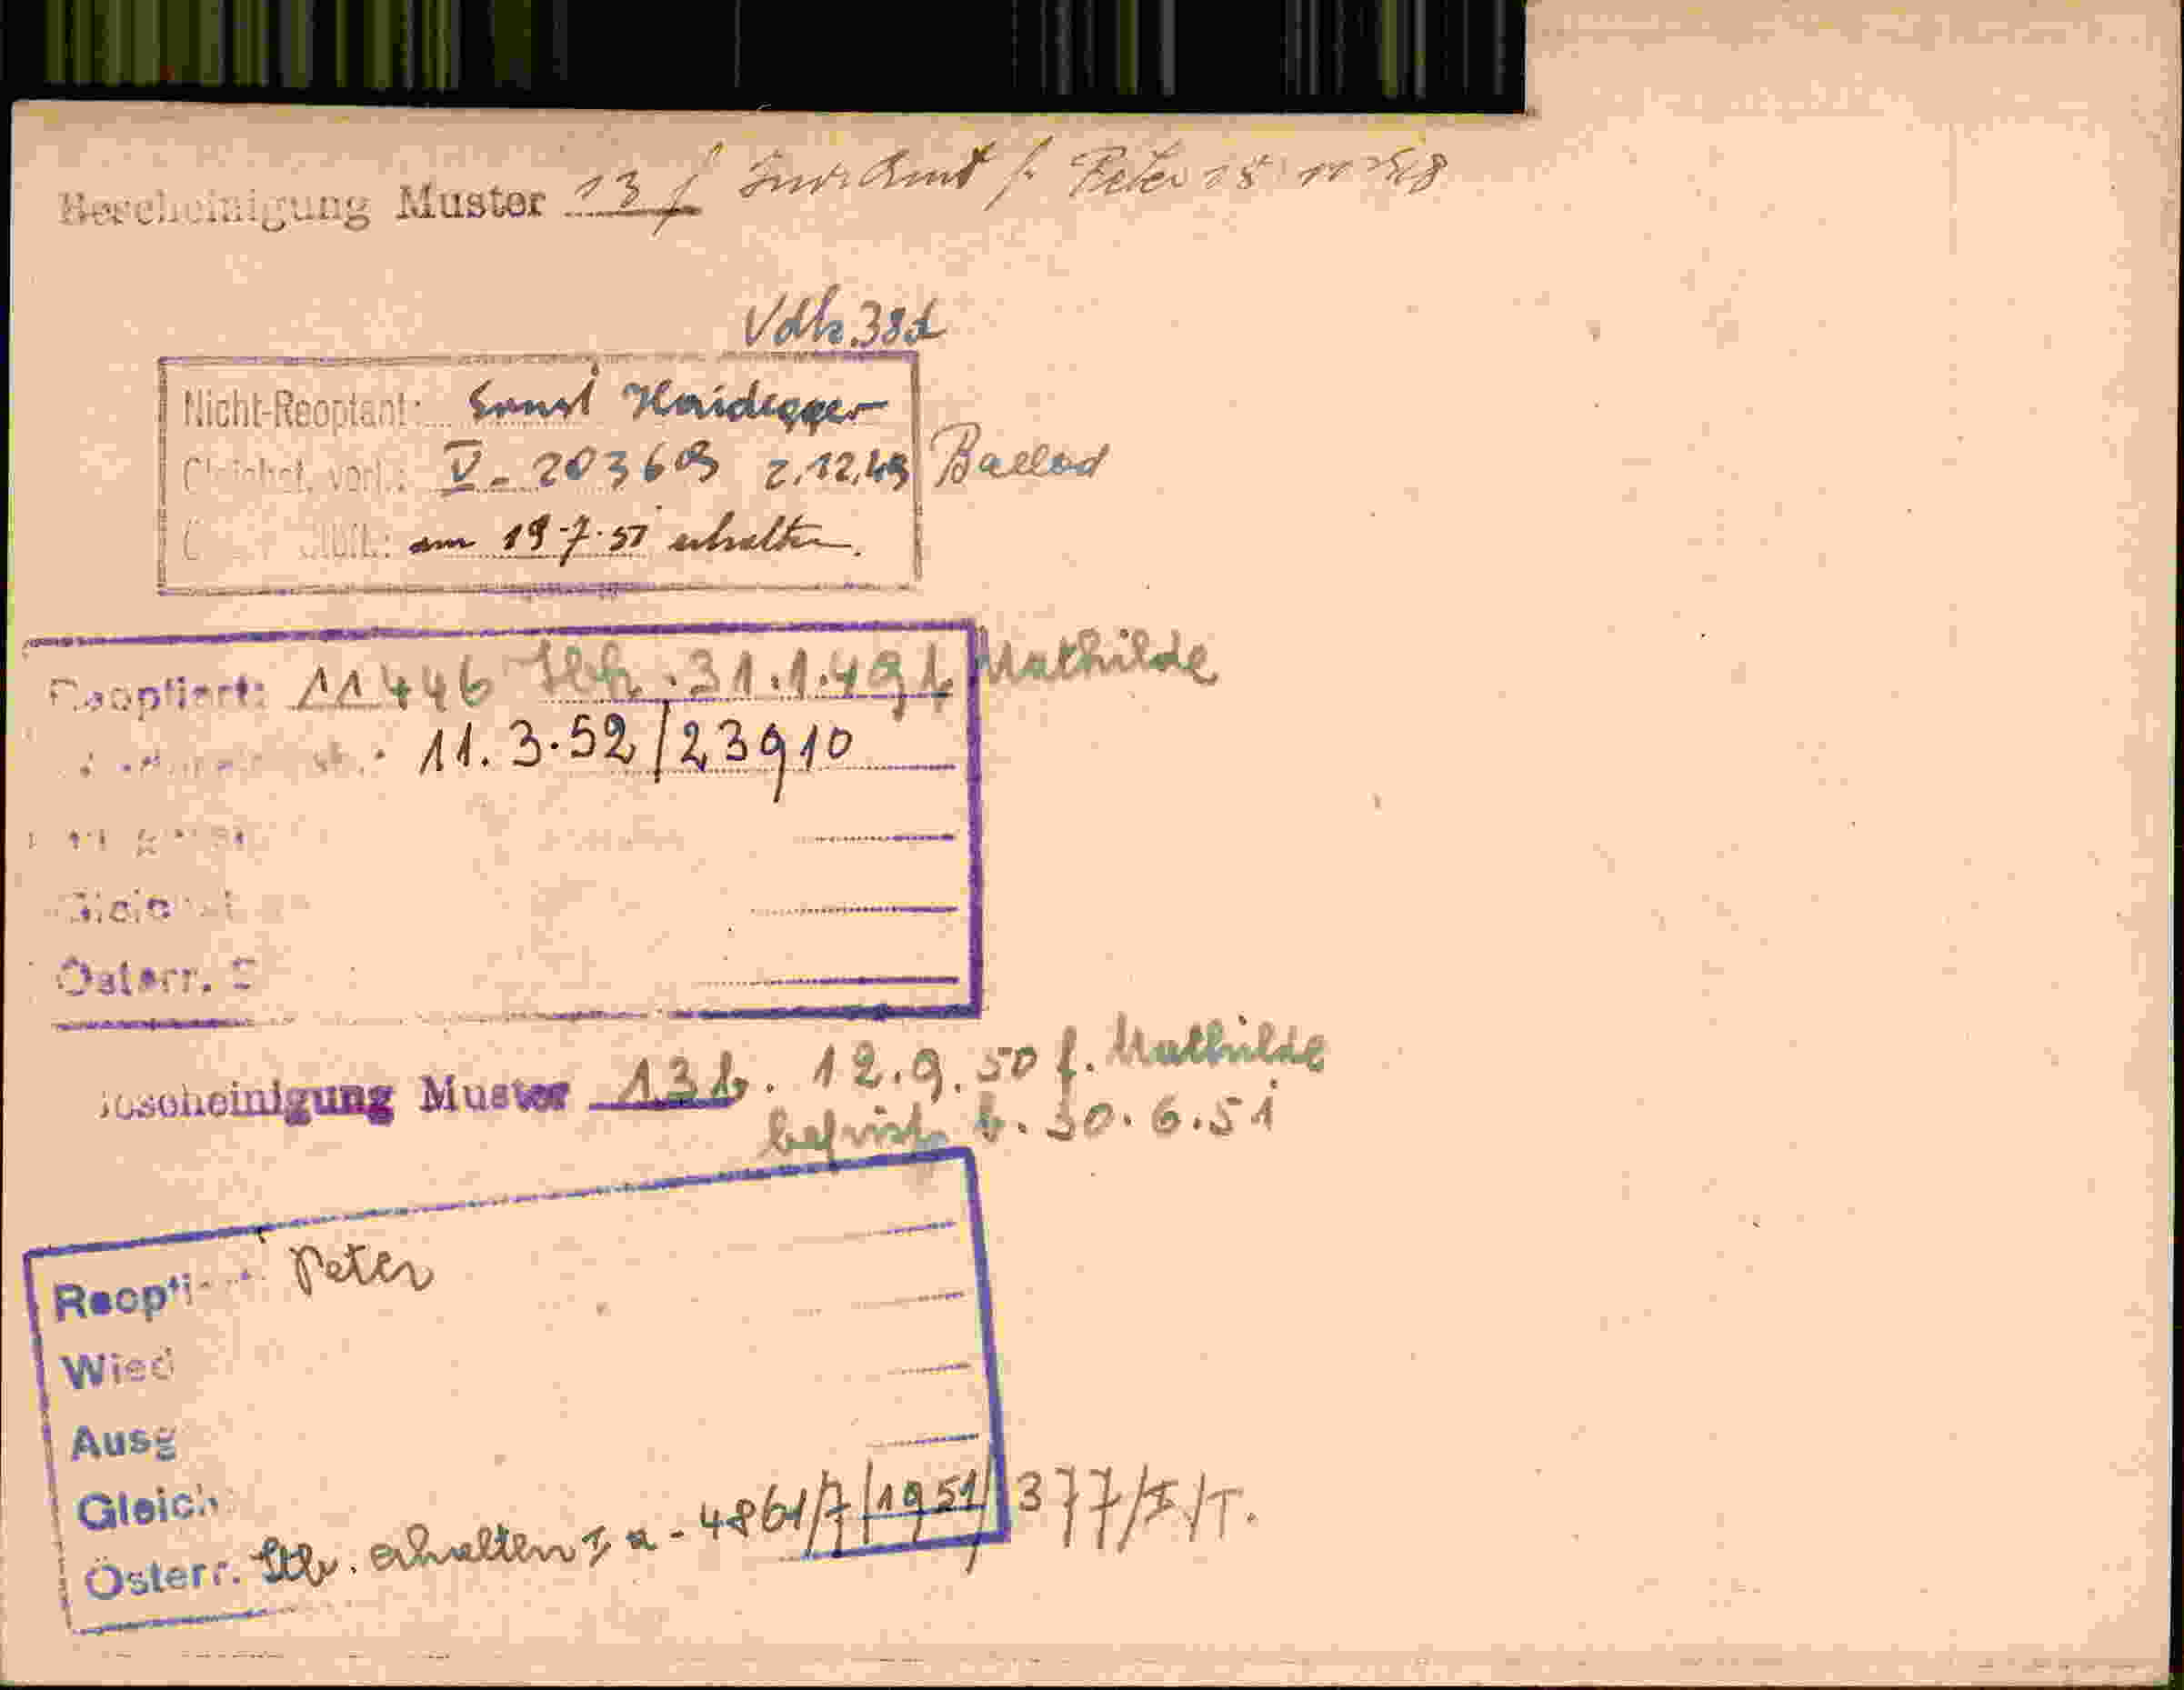 Bescheinigung Muster 13 f Peter
Nicht-Reoptant: Ernst Haidegger
V - 203609 2.12.49
am 19.7.51 erhalten.
Reoptiert: 11446 31.1.49 Mathilde
11.3.52/23910
Österr.
Bescheinigung Muster 13b. 12.9.50 f. Mathilde
befrist. b. 30.6.51
Reopti Peter
Wied
Ausg
Gleich
Österr. Stb. erhalten - 4861/7/1951/377/I/T.